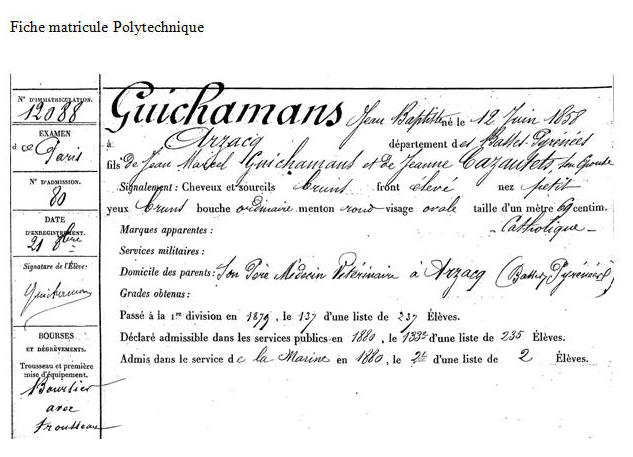 Fiche matricule Polytechnique
N° D'IMMATRICULATION.
12088
EXAMEN
de Paris
N° D'ADMISSION.
80
DATE
D'ENREGISTREMENT.
21 8bre
Signature de l'Élève:
Guichamans
BOURSES
ET DÉGRÈVEMENTS.
Trousseau et première
mise d'équipement.
Boursier
avec
trousseau
Guichamans Jean Baptiste né le 12 Juin 1858
à Arzacq département des Basses Pyrénées
fils de Jean Marcel Guichamans et de Jeanne Cazautets, son épouse
Signalement : Cheveux et sourcils bruns front élevé nez petit
yeux bruns bouche ordinaire menton rond visage ovale taille d'un mètre 69 centim.
Marques apparentes : Catholique
Services militaires :
Domicile des parents : Son Père Médecin Vétérinaire à Arzacq (Basses Pyrénées)
Grades obtenus :
Passé à la 1re division en 1879, le 137 d'une liste de 237 Élèves.
Déclaré admissible dans les services publics en 1880, le 133e d'une liste de 235 Élèves.
Admis dans le service de la Marine en 1880, le 2e d'une liste de 2 Élèves.